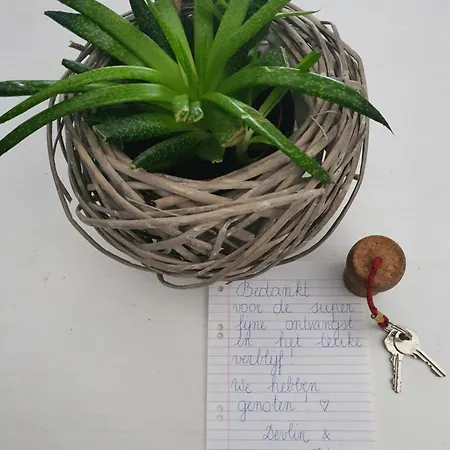 Bedankt
voor de super
fijne ontvangst
en het leuke
verblijf!
We hebben
genoten! ♡
Devlin &